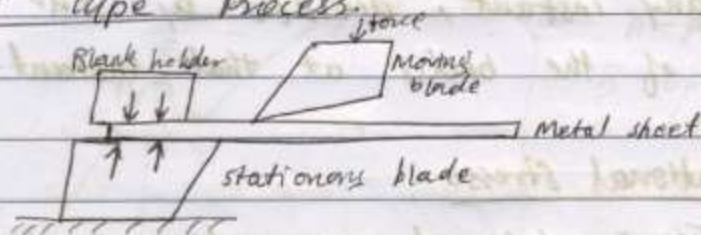 type Process.
↓force
Blank holder
Moving
blade
Metal sheet
stationory blade